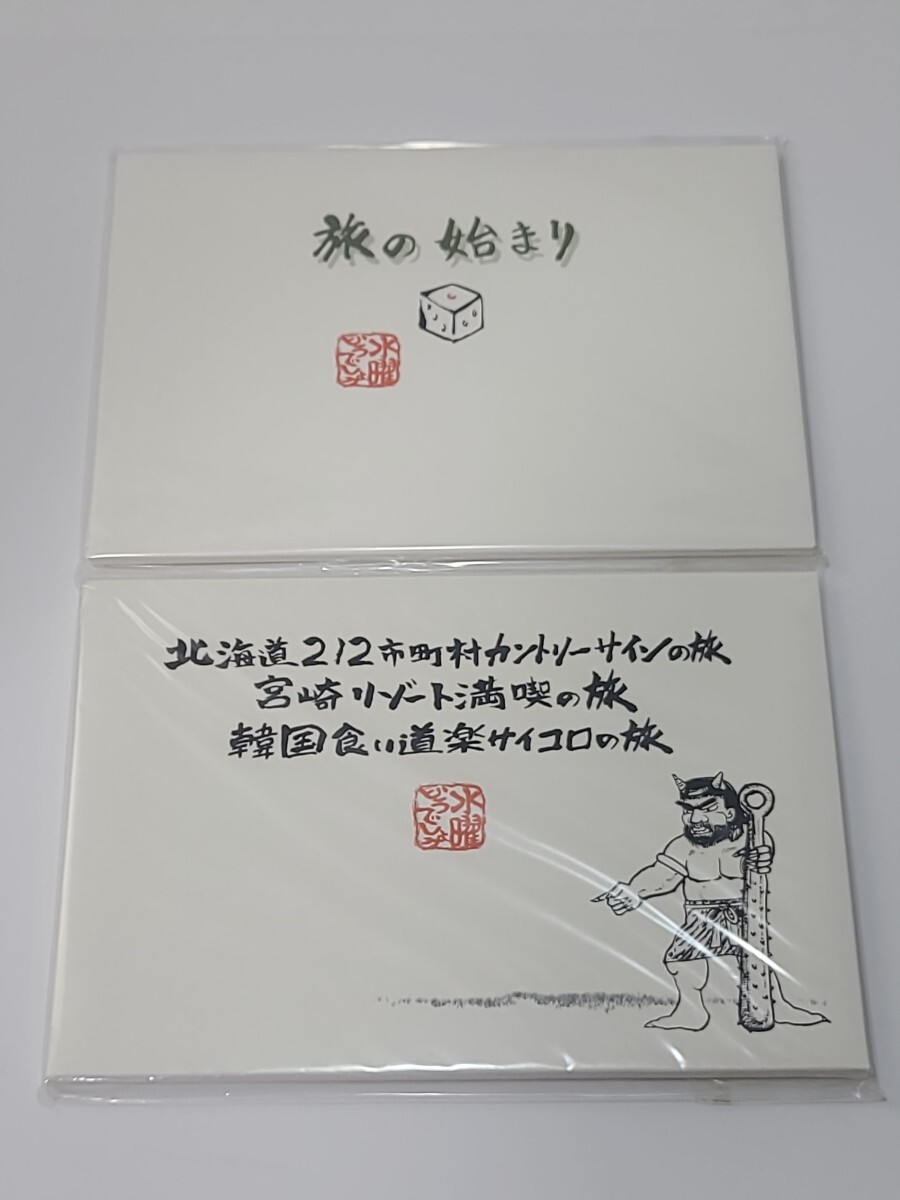 旅の始まり
水曜
どうでしょう
北海道212市町村カントリーサインの旅
宮崎リゾート満喫の旅
韓国食い道楽サイコロの旅
水曜
どうでしょう